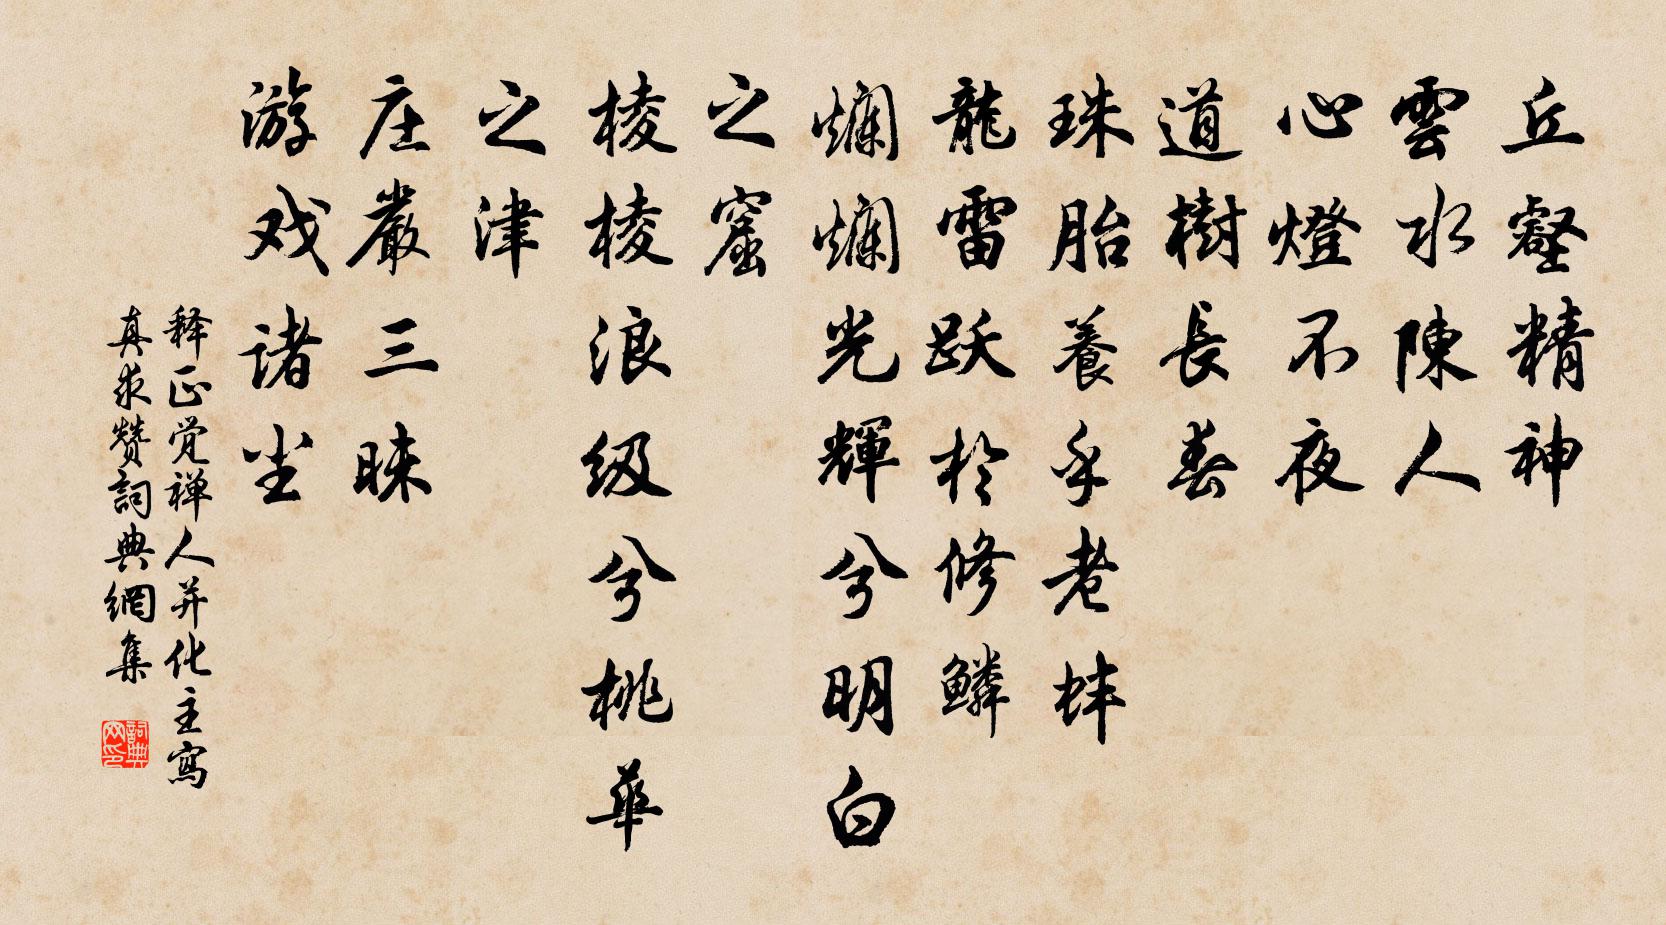 丘壑精神
雲水陳人
心燈不夜
道樹長春
珠胎養乎老蚌
龍雷跃於修鱗
爛爛光輝兮明白
之窟
棱棱浪级兮桃華
之津
庄嚴三昧
游戏諸尘
释正觉禅人并化主寫
真求赞詞典網集
詞典
网印